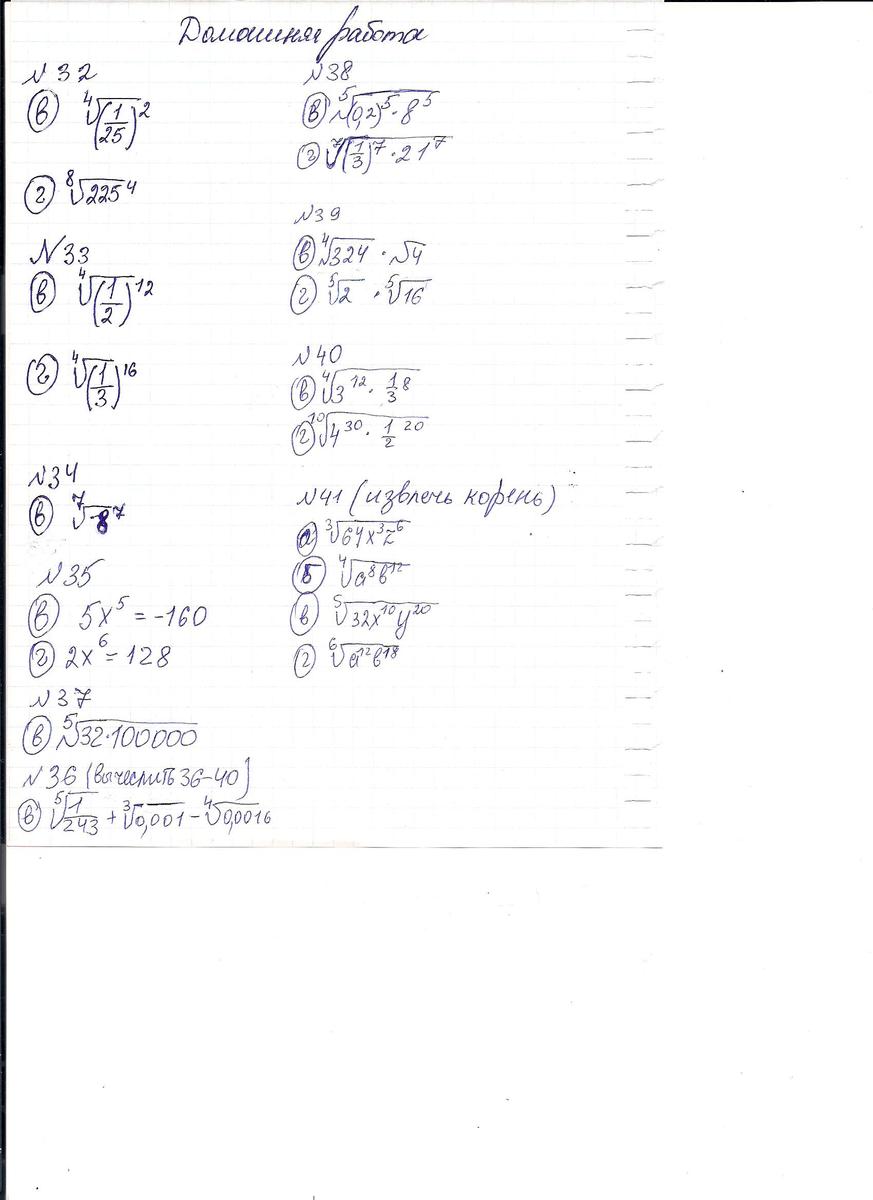 Домашняя работа
№32
в) ⁴√(1/25)²
г) ⁸√225⁴
№33
в) ⁴√(1/2)¹²
г) ⁴√(1/3)¹⁶
№34
в) ⁷√-8⁷
№35
в) 5x⁵ = -160
г) 2x⁶ = 128
№37
в) ⁵√32·100000
№36 (вычеслить 36-40)
в) ⁵√1/243 + ³√0,001 - ⁴√0,0016
№38
в) ⁵√(0,2)⁵·8⁵
г) ⁷√(1/3)⁷·21⁷
№39
в) ⁴√324 · √4
г) ⁵√2 · ⁵√16
№40
в) ⁴√3¹²·1/3⁸
г) ¹⁰√4³⁰·1/2²⁰
№41 (извлечь корень)
а) ³√64x³z⁶
б) ⁴√a⁸b¹²
в) ⁵√32x¹⁰y²⁰
г) ⁶√a¹²b¹⁸